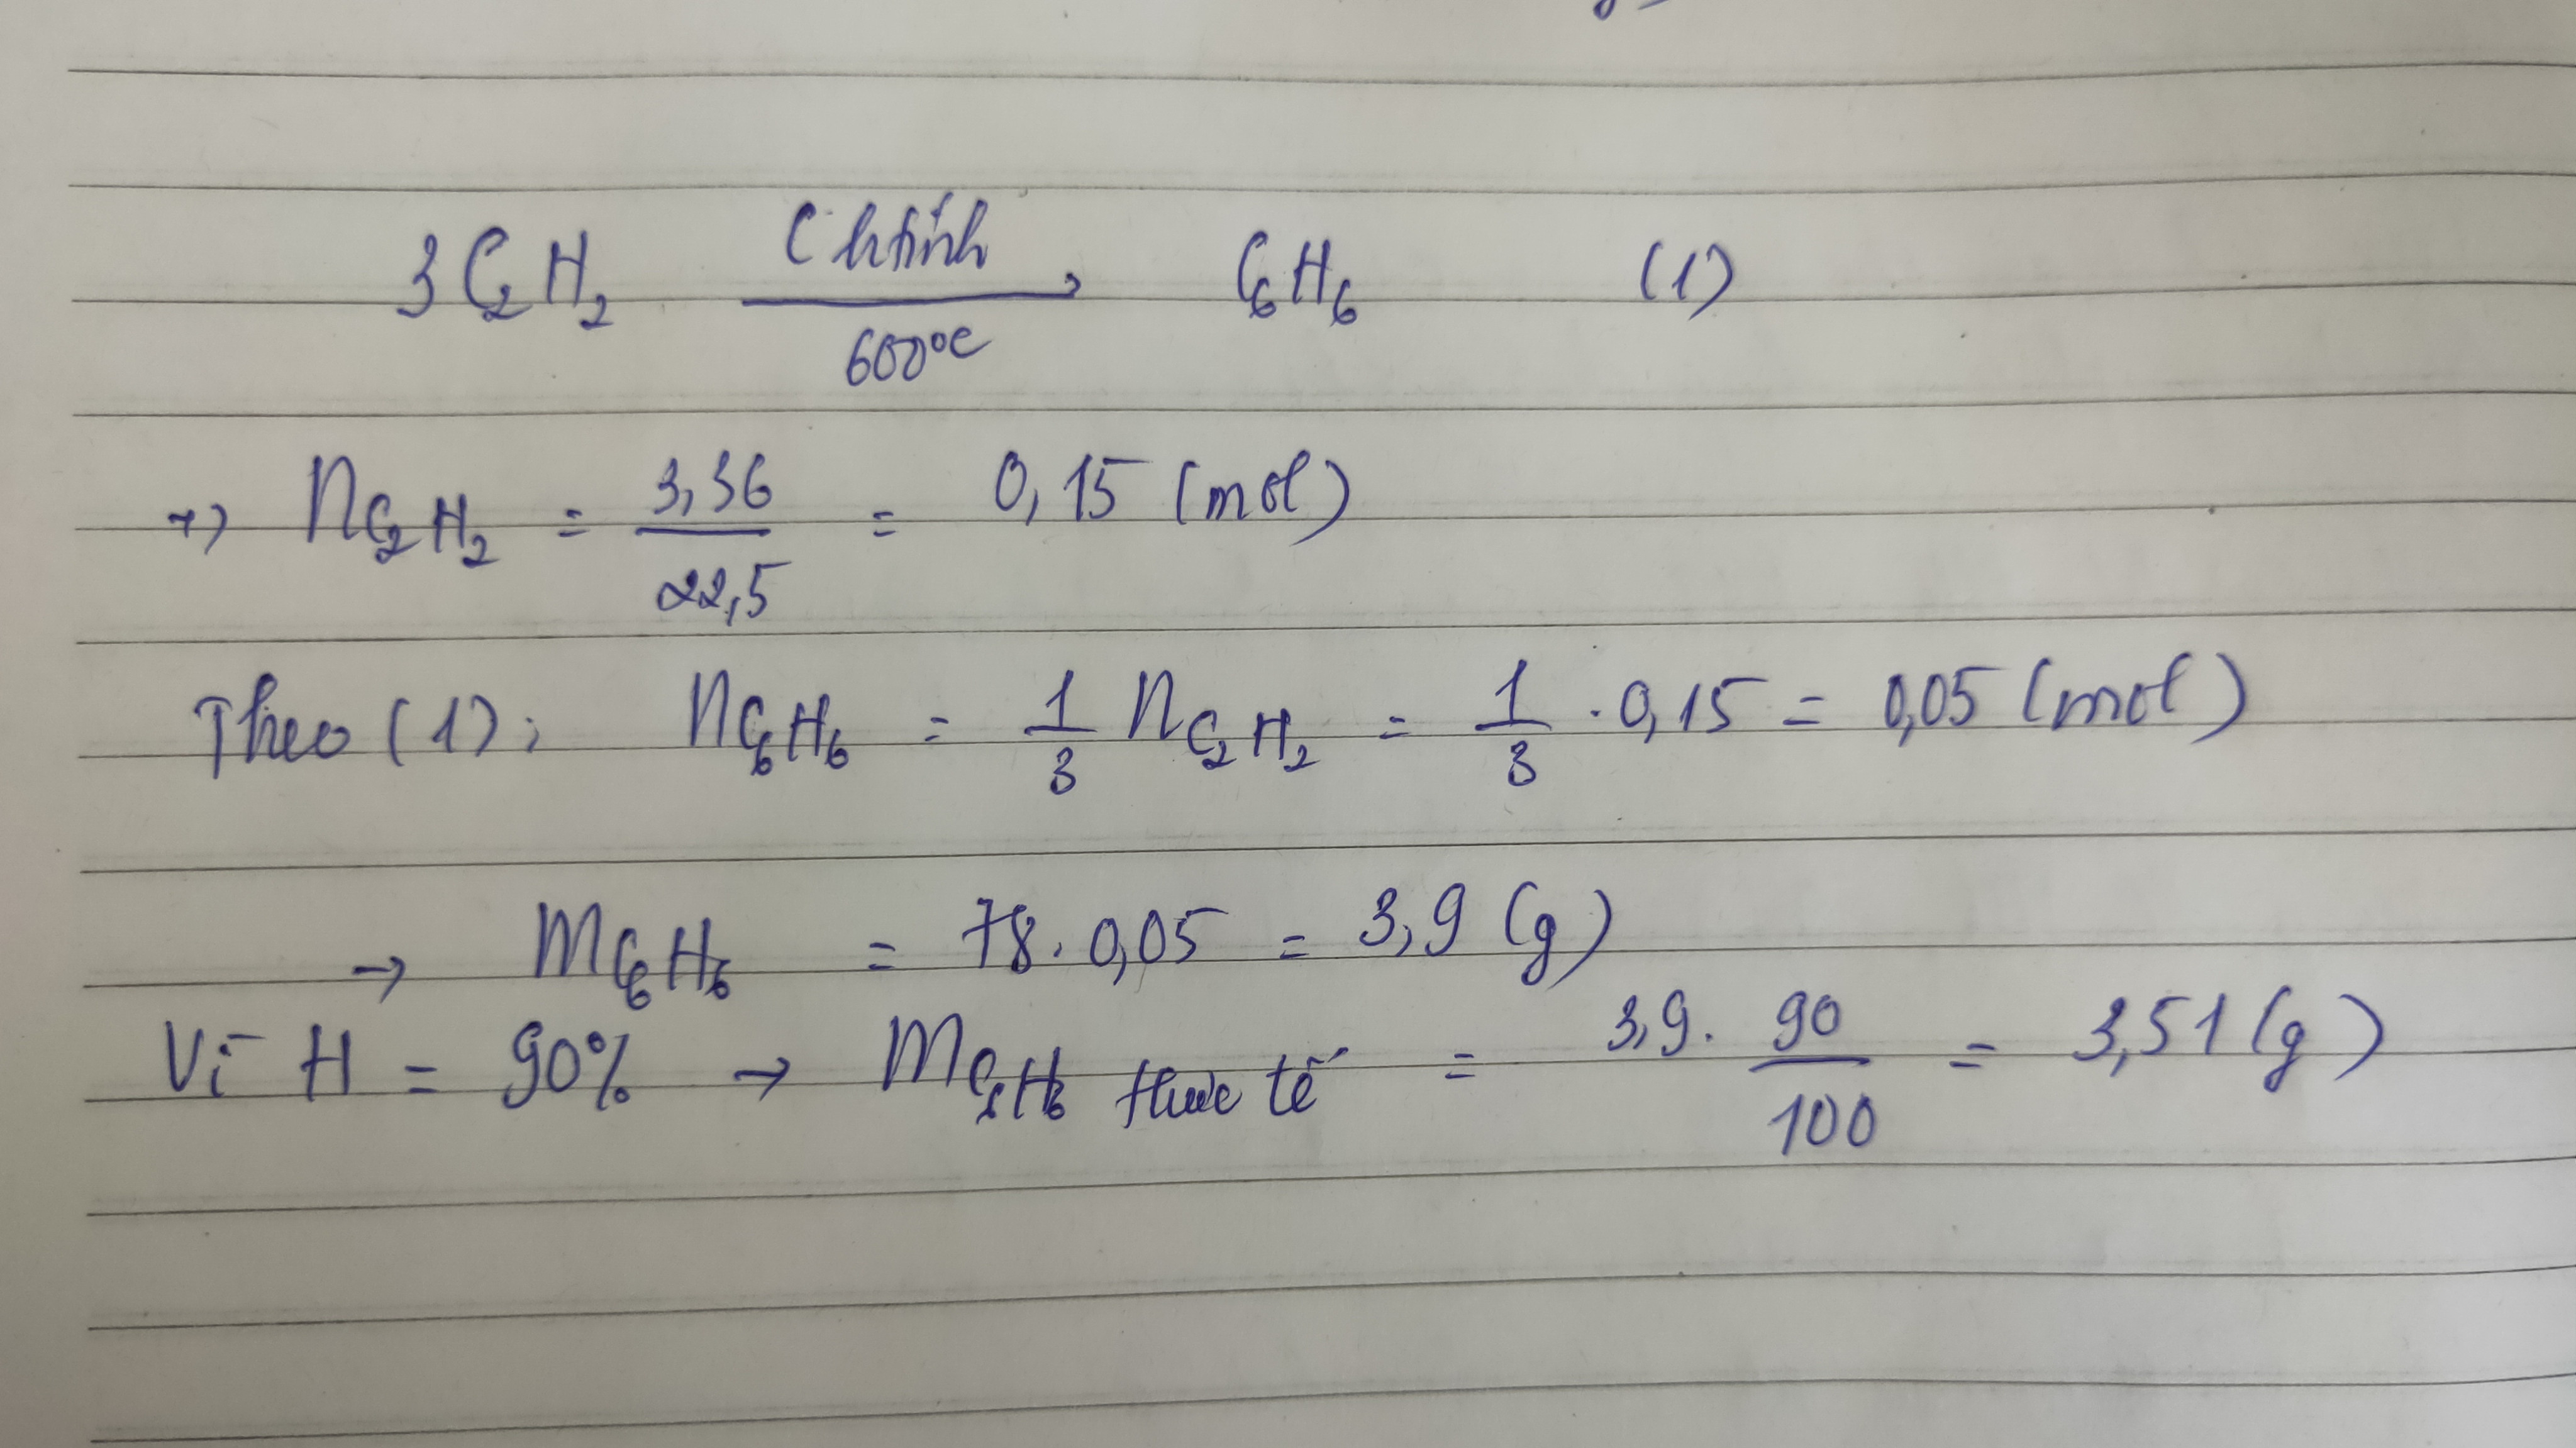 3C₂H₂ C htính → 600°C C₆H₆ (1)
→ nC₂H₂ = 3,36/22,5 = 0,15 (mol)
Theo (1): nC₆H₆ = 1/3 nC₂H₂ = 1/3 . 0,15 = 0,05 (mol)
→ mC₆H₆ = 78. 0,05 = 3,9 (g)
Vì H = 90% → mC₆H₆ thực tế = 3,9. 90/100 = 3,51 (g)